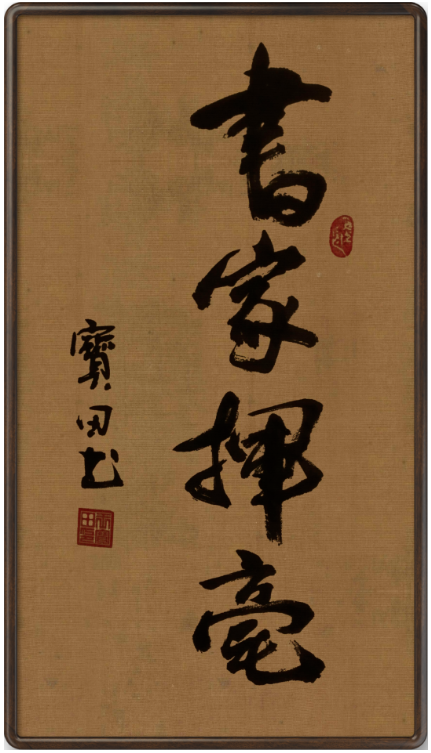 書家揮毫
寶田书